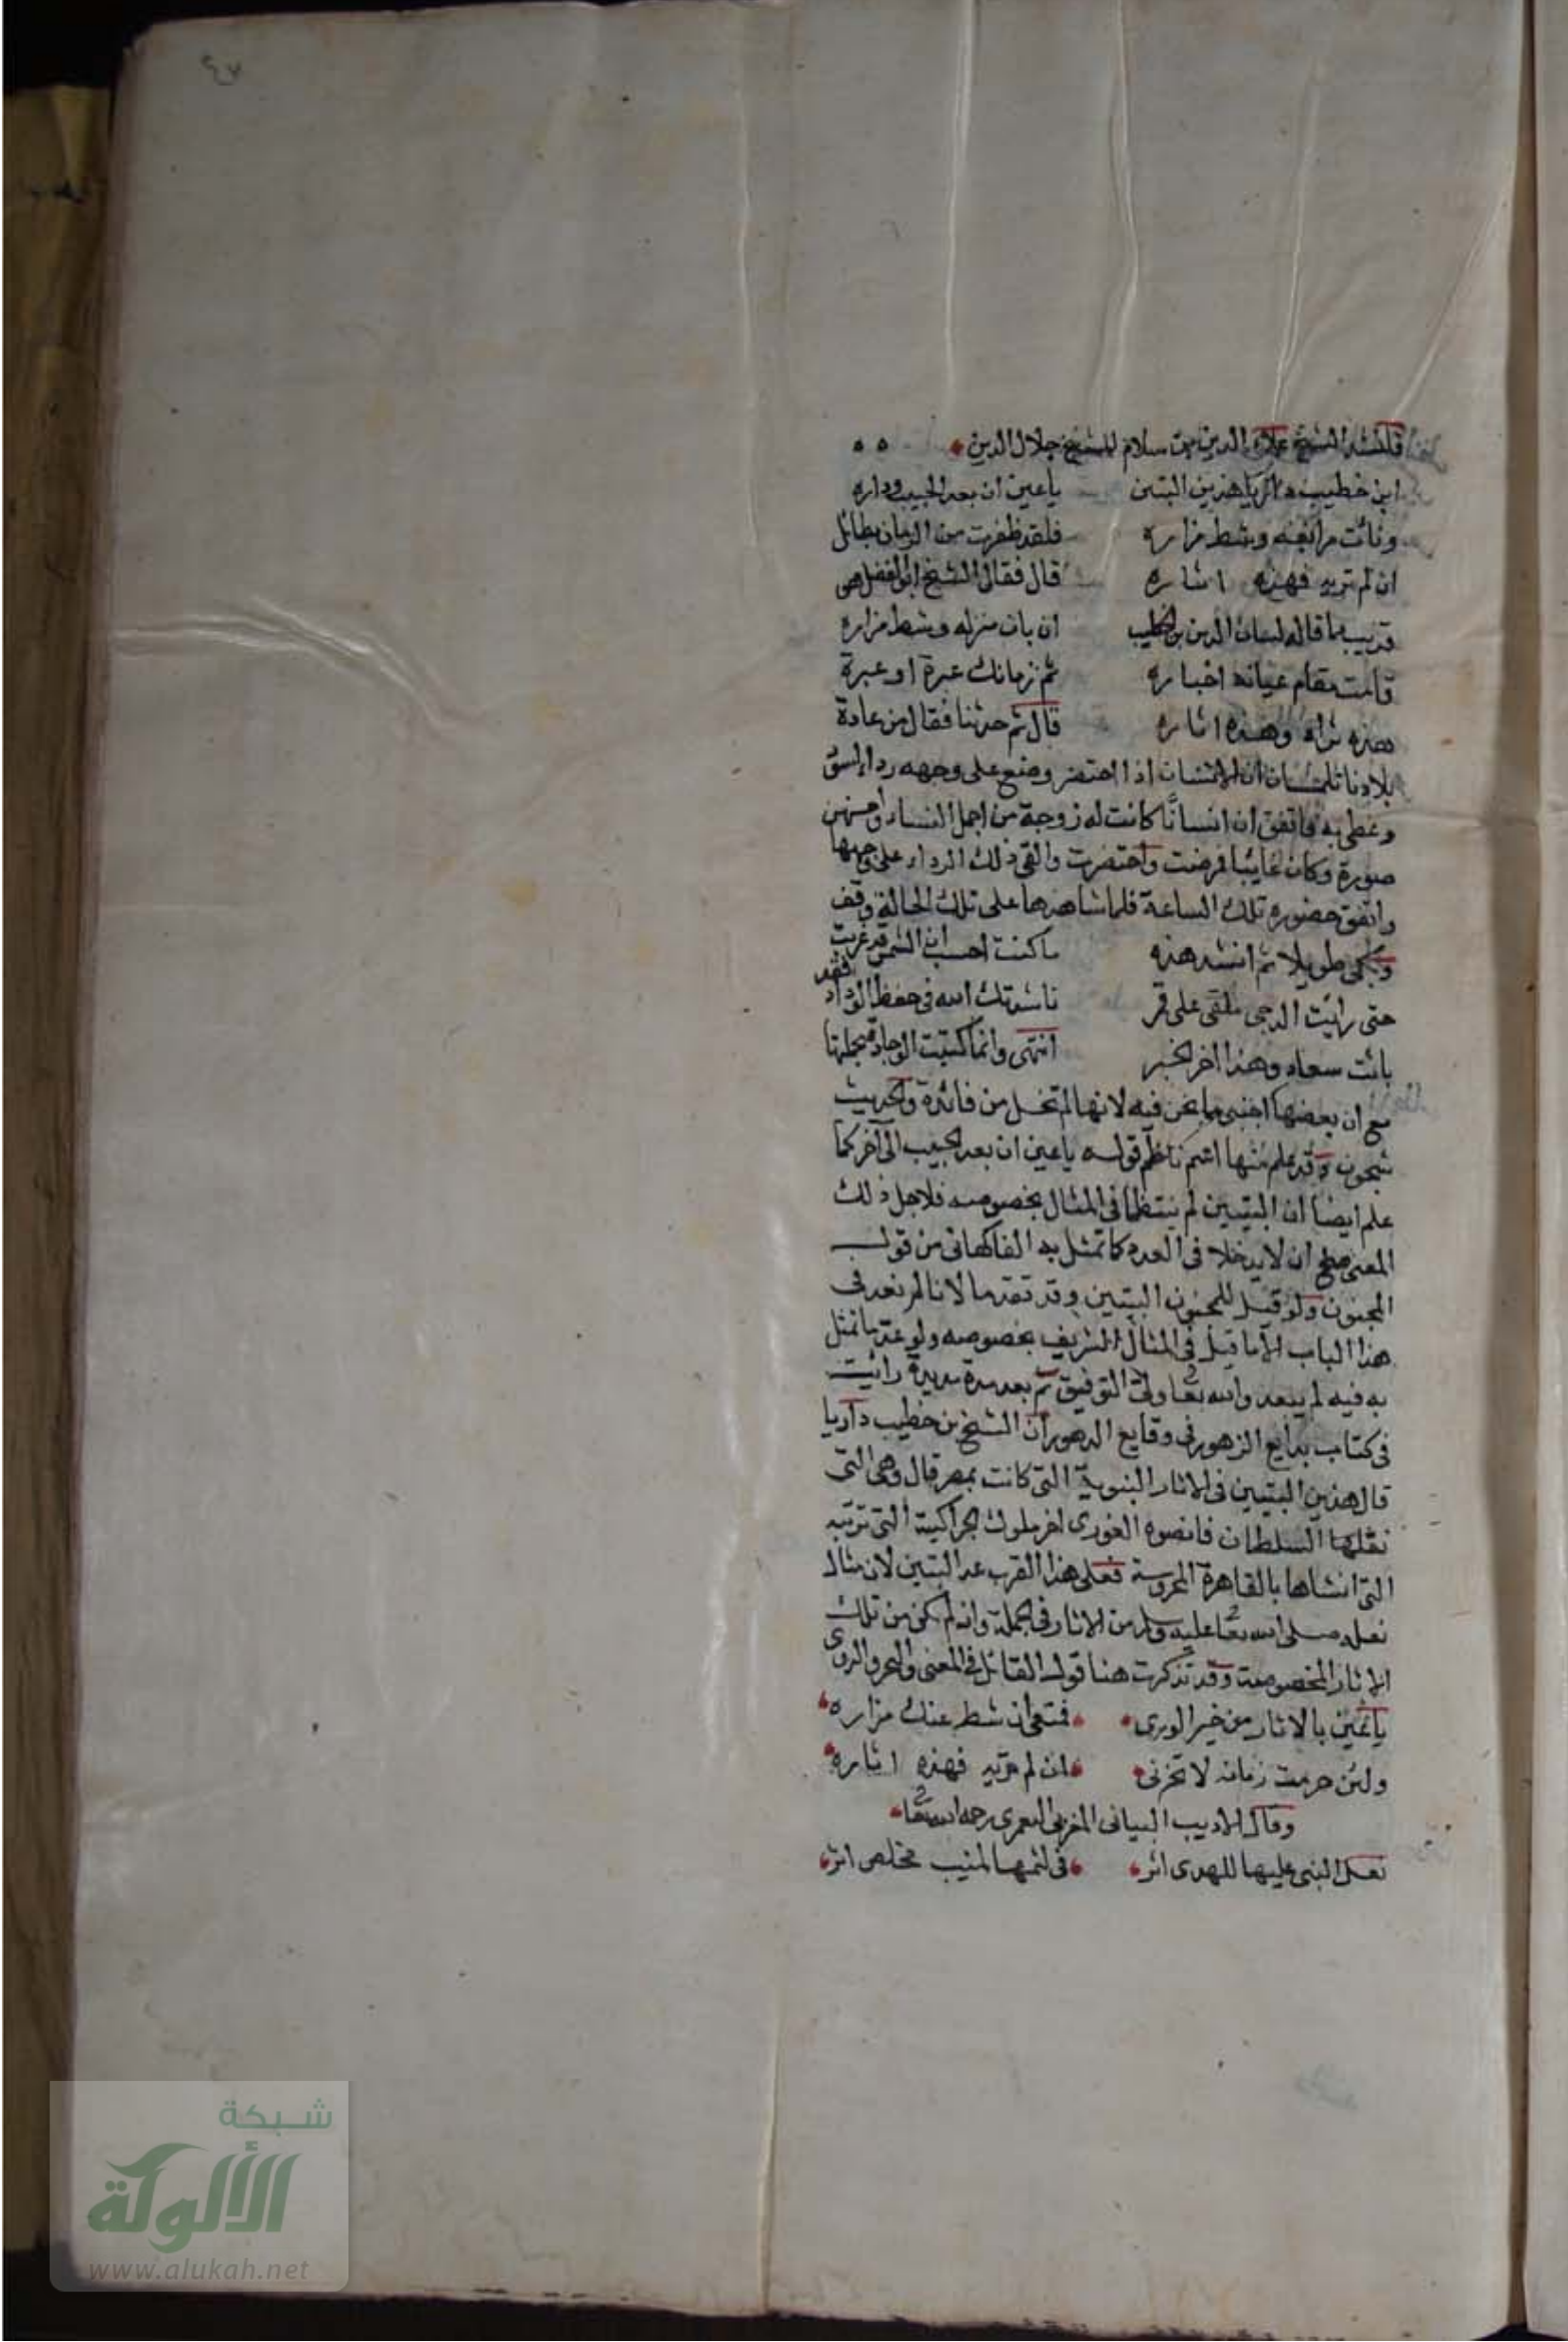 ٤٧
فانشد الشيخ علاء الدين بن سلام للشيخ جلال الدين
ابن خطيب داريا هذين البيتين ياعين ان بعد الحبيب وداره
ونائت مرابعه وشط مزاره فلقد ظفرت من الزمان بطائل
ان لم تريه فهذه اثاره قال فقال الشيخ ابو الفضل هى
قريب مما قاله لسان الدين بن الخطيب ان بان منزله وشط مزاره
قامت مقام عيانه اخباره قسم زمانك عبرة او عبرة
هذه ثراه وهذه اثاره قال ثم حدثنا فقال من عادة
بلادنا تلمسان ان الانسان اذا احتضر وضع على وجهه رداء
وغطى به فاتفق ان انسانا كانت له زوجة من اجمل النساء واحسنهن
صورة وكان غايبا فمرضت واحتضرت والقى ذلك الرداء على وجهها
واتفق حضوره تلك الساعة فلما شاهدها على تلك الحالة وقف
وبكى طويلا ثم انشد هذه ما كنت احسب ان الشمس قد غربت
حتى رايت الدجى ملقى على قمر ناشدتك الله فى حفظ الوداد فقد
بانت سعاد وهذا اخر الخبر انتهى وانما كتبت الوجادة بجملتها
مع ان بعضها اجنبى مما نحن فيه لانها لم تخل من فائدة والحديث
شجون وقد علم منها اسم ناظم قوله ياعين ان بعد الحبيب الى اخره كما
علم ايضا ان البيتين لم ينتظما فى المثال بخصوصه فلاجل ذلك
المعنى صلح ان لا يدخلا فى العدد كما تمثل به الفاكهانى من قول
المجنون ولو قيل للمجنون البيتين وقد تقدما لانا لم نعد فى
هذا الباب الا ما قيل فى المثال الشريف بخصوصه ولو عد ما تمثل
به فيه لم يبعد والله تعا ولى التوفيق ثم بعد مدة مديدة رائيت
فى كتاب بدايع الزهور فى وقايع الدهور ان الشيخ بن خطيب داريا
قال هذين البيتين فى الاثار النبوية التى كانت بمصر قال وهى التى
نقلها السلطان قانصوه الغورى اخر ملوك الجراكسة التى تربته
التى انشاها بالقاهرة المحروسة فعلى هذا القرب عد البيتين لان مثال
نعله صلى الله تعا عليه وسلم من الاثار فى الجملة وان لم يكن من تلك
الاثار المخصوصة وقد تذكرت هنا قول القائل فى المعنى والبحر والروى
ياعين بالاثار من خير الورى فتمتعى ان شط عنك مزاره
ولئن حرمت زمانه لا تحزنى ان لم تريه فهذه اثاره
وقال الاديب البيانى المغربى المعمرى رحمه الله تعا
نعل النبى عليها للهدى اثر فى لثمها لمنيب مخلص اثر
شبكة
الألوكة
www.alukah.net